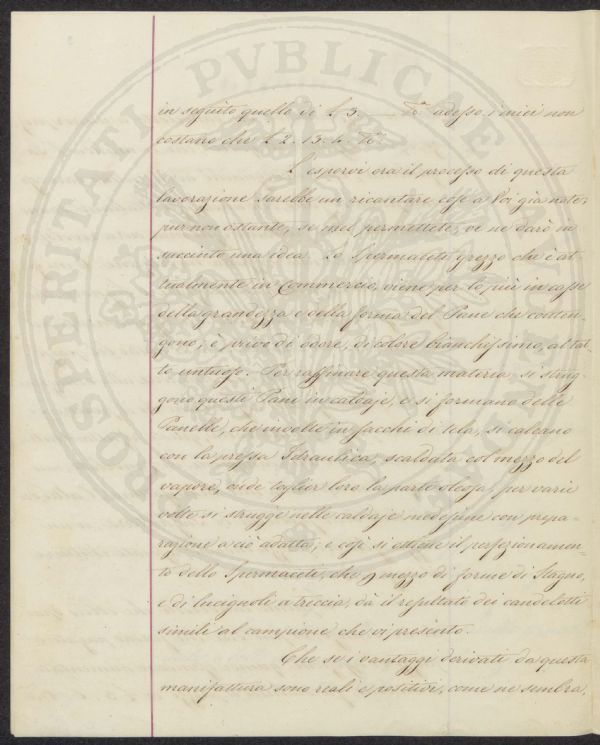 in seguito quello di £ 3. —— Fe. adesso i miei non
costano che £ 2. 13. 4. Fe.
L'esporvi ora il processo di questa
lavorazione sarebbe un ricantare cose a Voi già note;
pur non ostante, se mel permettete, ve ne darò in
succinto una idea. Lo Spermaceti grezzo che è at-
tualmente in Commercio, viene per lo più in casse
della grandezza e della forma del Pane che conten-
gono; è privo di odore, di colore bianchissimo, al tat-
to untuoso. Per raffinare questa materia si strug-
gono questi Pani in caldaje, e si formano delle
Panelle, che involte in sacchi di tela, si calcano
con la pressa Idraulica, scaldata col mezzo del
vapore, onde toglier loro la parte oleosa; per varie
volte si strugge nelle caldaje medesime con prepa-
razione a ciò adatta; e così si ottiene il perfezionamen-
to dello Spermaceti, che p mezzo di forme di Stagno,
e di lucignoli a treccia, dà il resultato dei candelotti
simili al campione che vi presento.
Che se i vantaggi derivati da questa
manifattura sono reali e positivi, come ne sembra,
PROSPERITATI PVBLICAE